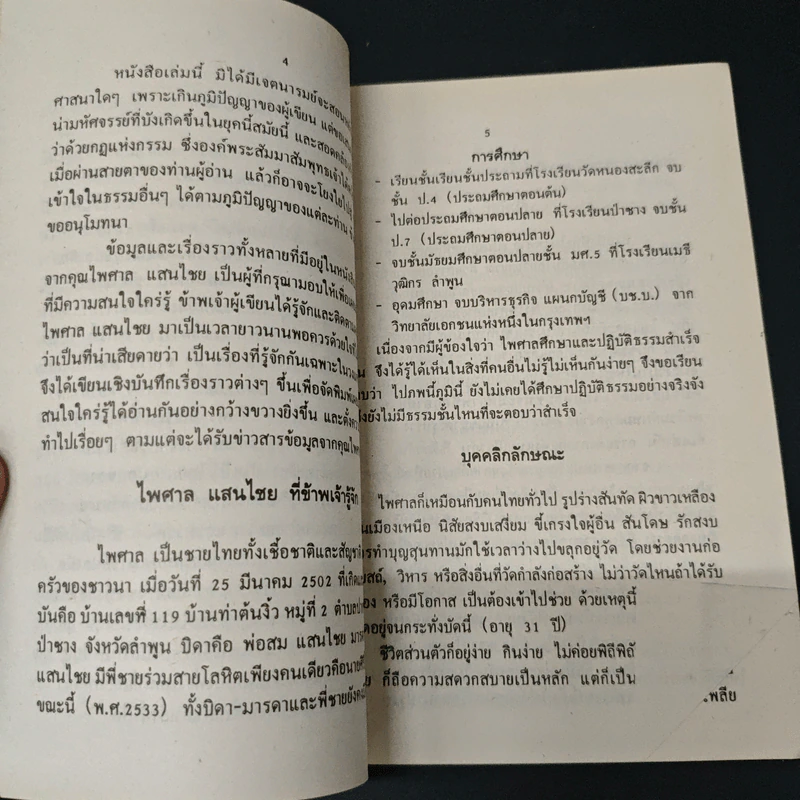 4
หนังสือเล่มนี้ มิได้มีเจตนารมย์จะสอน
ศาสนาใดๆ เพราะเกินภูมิปัญญาของผู้เขียน แต่ขอ
น่ามหัศจรรย์ที่บังเกิดขึ้นในยุคนี้สมัยนี้ และสอดคล้อง
ว่าด้วยกฎแห่งกรรม ซึ่งองค์พระสัมมาสัมพุทธเจ้าได้
เมื่อผ่านสายตาของท่านผู้อ่าน แล้วก็อาจจะโยงใยไป
เข้าใจในธรรมอื่นๆ ได้ตามภูมิปัญญาของแต่ละท่าน
ขออนุโมทนา
ข้อมูลและเรื่องราวทั้งหลายที่มีอยู่ในหนังสือ
จากคุณไพศาล แสนไชย เป็นผู้ที่กรุณามอบให้เพื่อ
ที่มีความสนใจใคร่รู้ ข้าพเจ้าผู้เขียนได้รู้จักและติดตาม
ไพศาล แสนไชย มาเป็นเวลายาวนานพอควรด้วยใจที่
ว่าเป็นที่น่าเสียดายว่า เป็นเรื่องที่รู้จักกันเฉพาะใน
จึงได้เขียนเชิงบันทึกเรื่องราวต่างๆ ขึ้นเพื่อจัดพิมพ์
สนใจใคร่รู้ได้อ่านกันอย่างกว้างขวางยิ่งขึ้น และตั้ง
ทำไปเรื่อยๆ ตามแต่จะได้รับข่าวสารข้อมูลจากคุณ
ไพศาล แสนไชย ที่ข้าพเจ้ารู้จัก
ไพศาล เป็นชายไทยทั้งเชื้อชาติและสัญชาติ
ครัวของชาวนา เมื่อวันที่ 25 มีนาคม 2502 ที่เกิด
บันคือ บ้านเลขที่ 119 บ้านท่าต้นงิ้ว หมู่ที่ 2 ตำบล
ป่าซาง จังหวัดลำพูน บิดาคือ พ่อสม แสนไชย มารดา
แสนไชย มีพี่ชายร่วมสายโลหิตเพียงคนเดียวคือนาย
ขณะนี้ (พ.ศ.2533) ทั้งบิดา-มารดาและพี่ชายยัง
5
การศึกษา
- เรียนชั้นเรียนชั้นประถามที่โรงเรียนวัดหนองสะลีก จบ
ชั้น ป.4 (ประถมศึกษาตอนต้น)
- ไปต่อประถมศึกษาตอนปลาย ที่โรงเรียนป่าซาง จบชั้น
ป.7 (ประถมศึกษาตอนปลาย)
- จบชั้นมัธยมศึกษาตอนปลายชั้น มศ.5 ที่โรงเรียนเมธี
วุฒิกร ลำพูน
- อุดมศึกษา จบบริหารธุรกิจ แผนกบัญชี (บช.บ.) จาก
วิทยาลัยเอกชนแห่งหนึ่งในกรุงเทพฯ
เนื่องจากมีผู้ข้องใจว่า ไพศาลศึกษาและปฏิบัติธรรมสำเร็จ
จึงได้รู้ได้เห็นในสิ่งที่คนอื่นไม่รู้ไม่เห็นกันง่ายๆ จึงขอเรียน
ว่า ไปภพนี้ภูมินี้ ยังไม่เคยได้ศึกษาปฏิบัติธรรมอย่างจริงจัง
ยังไม่มีธรรมชั้นไหนที่จะตอบว่าสำเร็จ
บุคคลิกลักษณะ
ไพศาลก็เหมือนกับคนไทยทั่วไป รูปร่างสันทัด ผิวขาวเหลือง
เมืองเหนือ นิสัยสงบเสงี่ยม ขี้เกรงใจผู้อื่น สันโดษ รักสงบ
การทำบุญสุนทานมักใช้เวลาว่างไปขลุกอยู่วัด โดยช่วยงานก่อ
วิหาร หรือสิ่งอื่นที่วัดกำลังก่อสร้าง ไม่ว่าวัดไหนถ้าได้รับ
หรือมีโอกาส เป็นต้องเข้าไปช่วย ด้วยเหตุนี้
อยู่จนกระทั่งบัดนี้ (อายุ 31 ปี)
ชีวิตส่วนตัวก็อยู่ง่าย กินง่าย ไม่ค่อยพิถีพิถั
ก็ถือความสดวกสบายเป็นหลัก แต่ก็เป็น
เพลีย